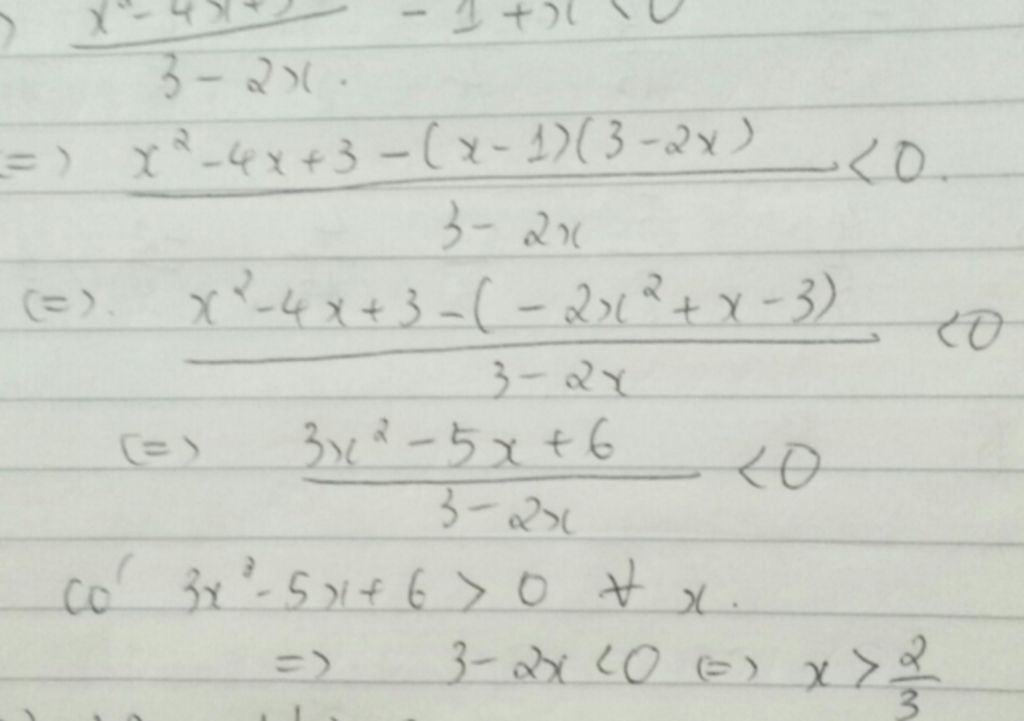 x² - 4x + 3 / 3 - 2x. - 1 + x < 0
<=> x² - 4x + 3 - (x - 1)(3 - 2x) / 3 - 2x < 0.
(=). x² - 4x + 3 - (- 2x² + x - 3) / 3 - 2x < 0
(=> 3x² - 5x + 6 / 3 - 2x < 0
có 3x² - 5x + 6 > 0 ∀ x.
=> 3 - 2x < 0 (=> x > 2/3